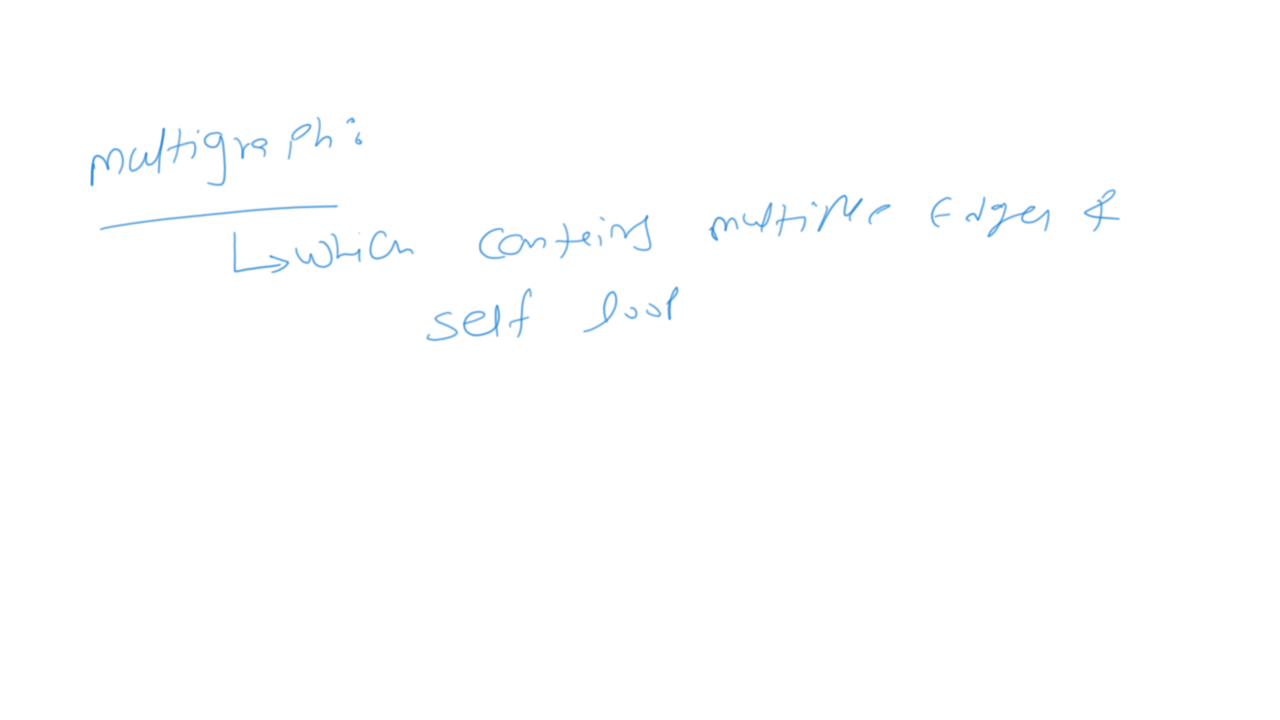 multigraph:
↳ which conteins multiple Edges &
self loop